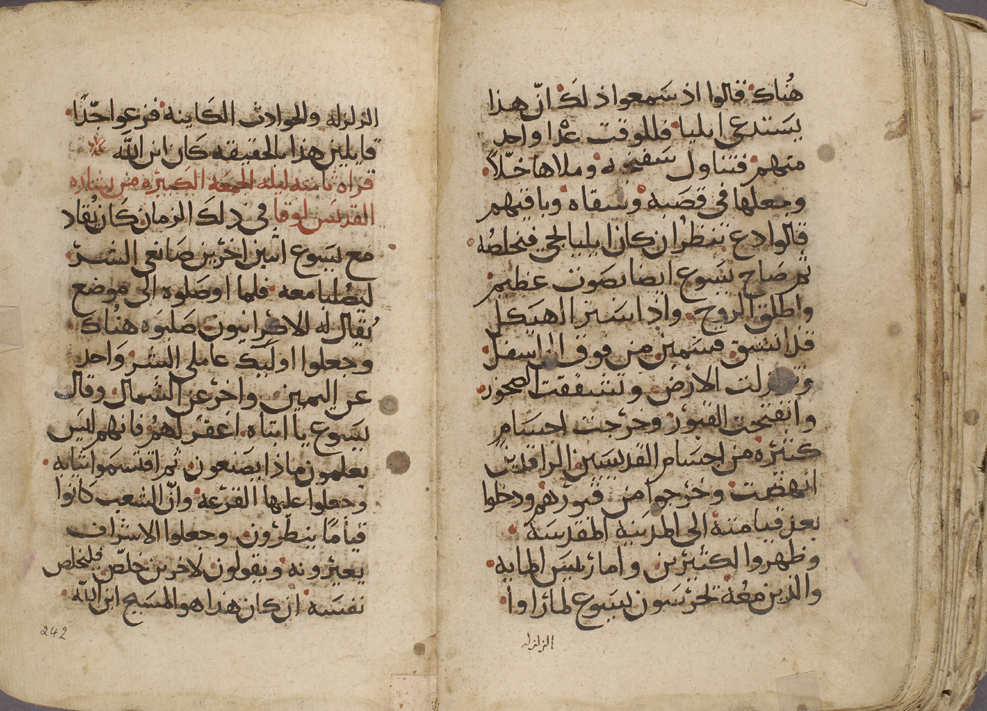 هُناك قالوا اذ سَمعوا ذلك انّ هذا
يستدعي ايليا فللوقت عدا واحد
منهم فتناول سفنجه وملاها خلّاً
وجعلها في قصَبه وسقاه وباقيهم
قالوا دع ننظر ان كان ايليا يجي فيخلصُه
ثم صاح يسوع ايضا بصوت عظيم
واطلق الروح واذا ستر الهيكل
قد انشق قسمين من فوق الى اسفل
وتزلزلت الارض وتشققت الصخور
وانفتحت القبور وخرجت اجسام
كثيره من اجسام القديسين الراقدين
انهضت وخرجوا من قبورهم ودخلوا
بعد قيامته الى المدينه المقدسَه
وظهروا لكثيرين واما رييس المايه
والذين معُه يحرسون يسوع لما راوا
الزلزله
الزلزله والحوادث الكاينه فزعوا جدّاً
قايلين هذا بالحقيقه كان ابن الله
قراه ثامنه ليله الجمعه الكبيره من بشاره
القديس لوقا في ذلك الزمان كان يُقاد
مع يسوع اثنين اخرين صانعي الشر
ليُصلبا معه فلما اوصلوه الى موضع
يُقال له الاقرانيون صلبوه هُناك
وجعلوا اوليك عاملي الشر واحد
عن اليمين واخر عن الشمال وقال
يسوع يا ابتاه اغفر لهم فانهم ليس
يعلمون ماذا يصنعون ثم اقتسموا ثيابه
وجعلوا عليها القرعه وانّ الشعب كانوا
قيامًا ينظُرون وجعلوا الاشراف
يعيّرونه ويقولون لاخرين خلّص فليخلص
نفسه ان كان هذا هو المسيح ابن الله
242